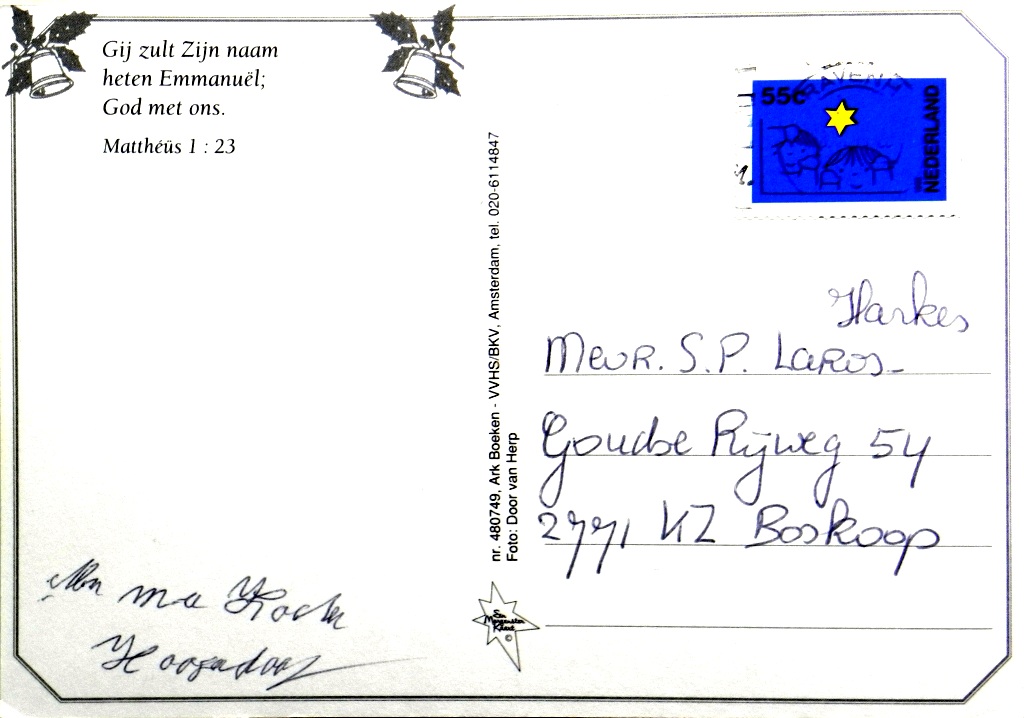 Gij zult Zijn naam
heten Emmanuël;
God met ons.
Matthéüs 1 : 23
nr. 480749, Ark Boeken - VVHS/BKV, Amsterdam, tel. 020-6114847
Foto: Door van Herp
55c
NEDERLAND
Harkes
Mevr. S.P. Laros-
Goudse Rijweg 54
2771 KZ Boskoop
©